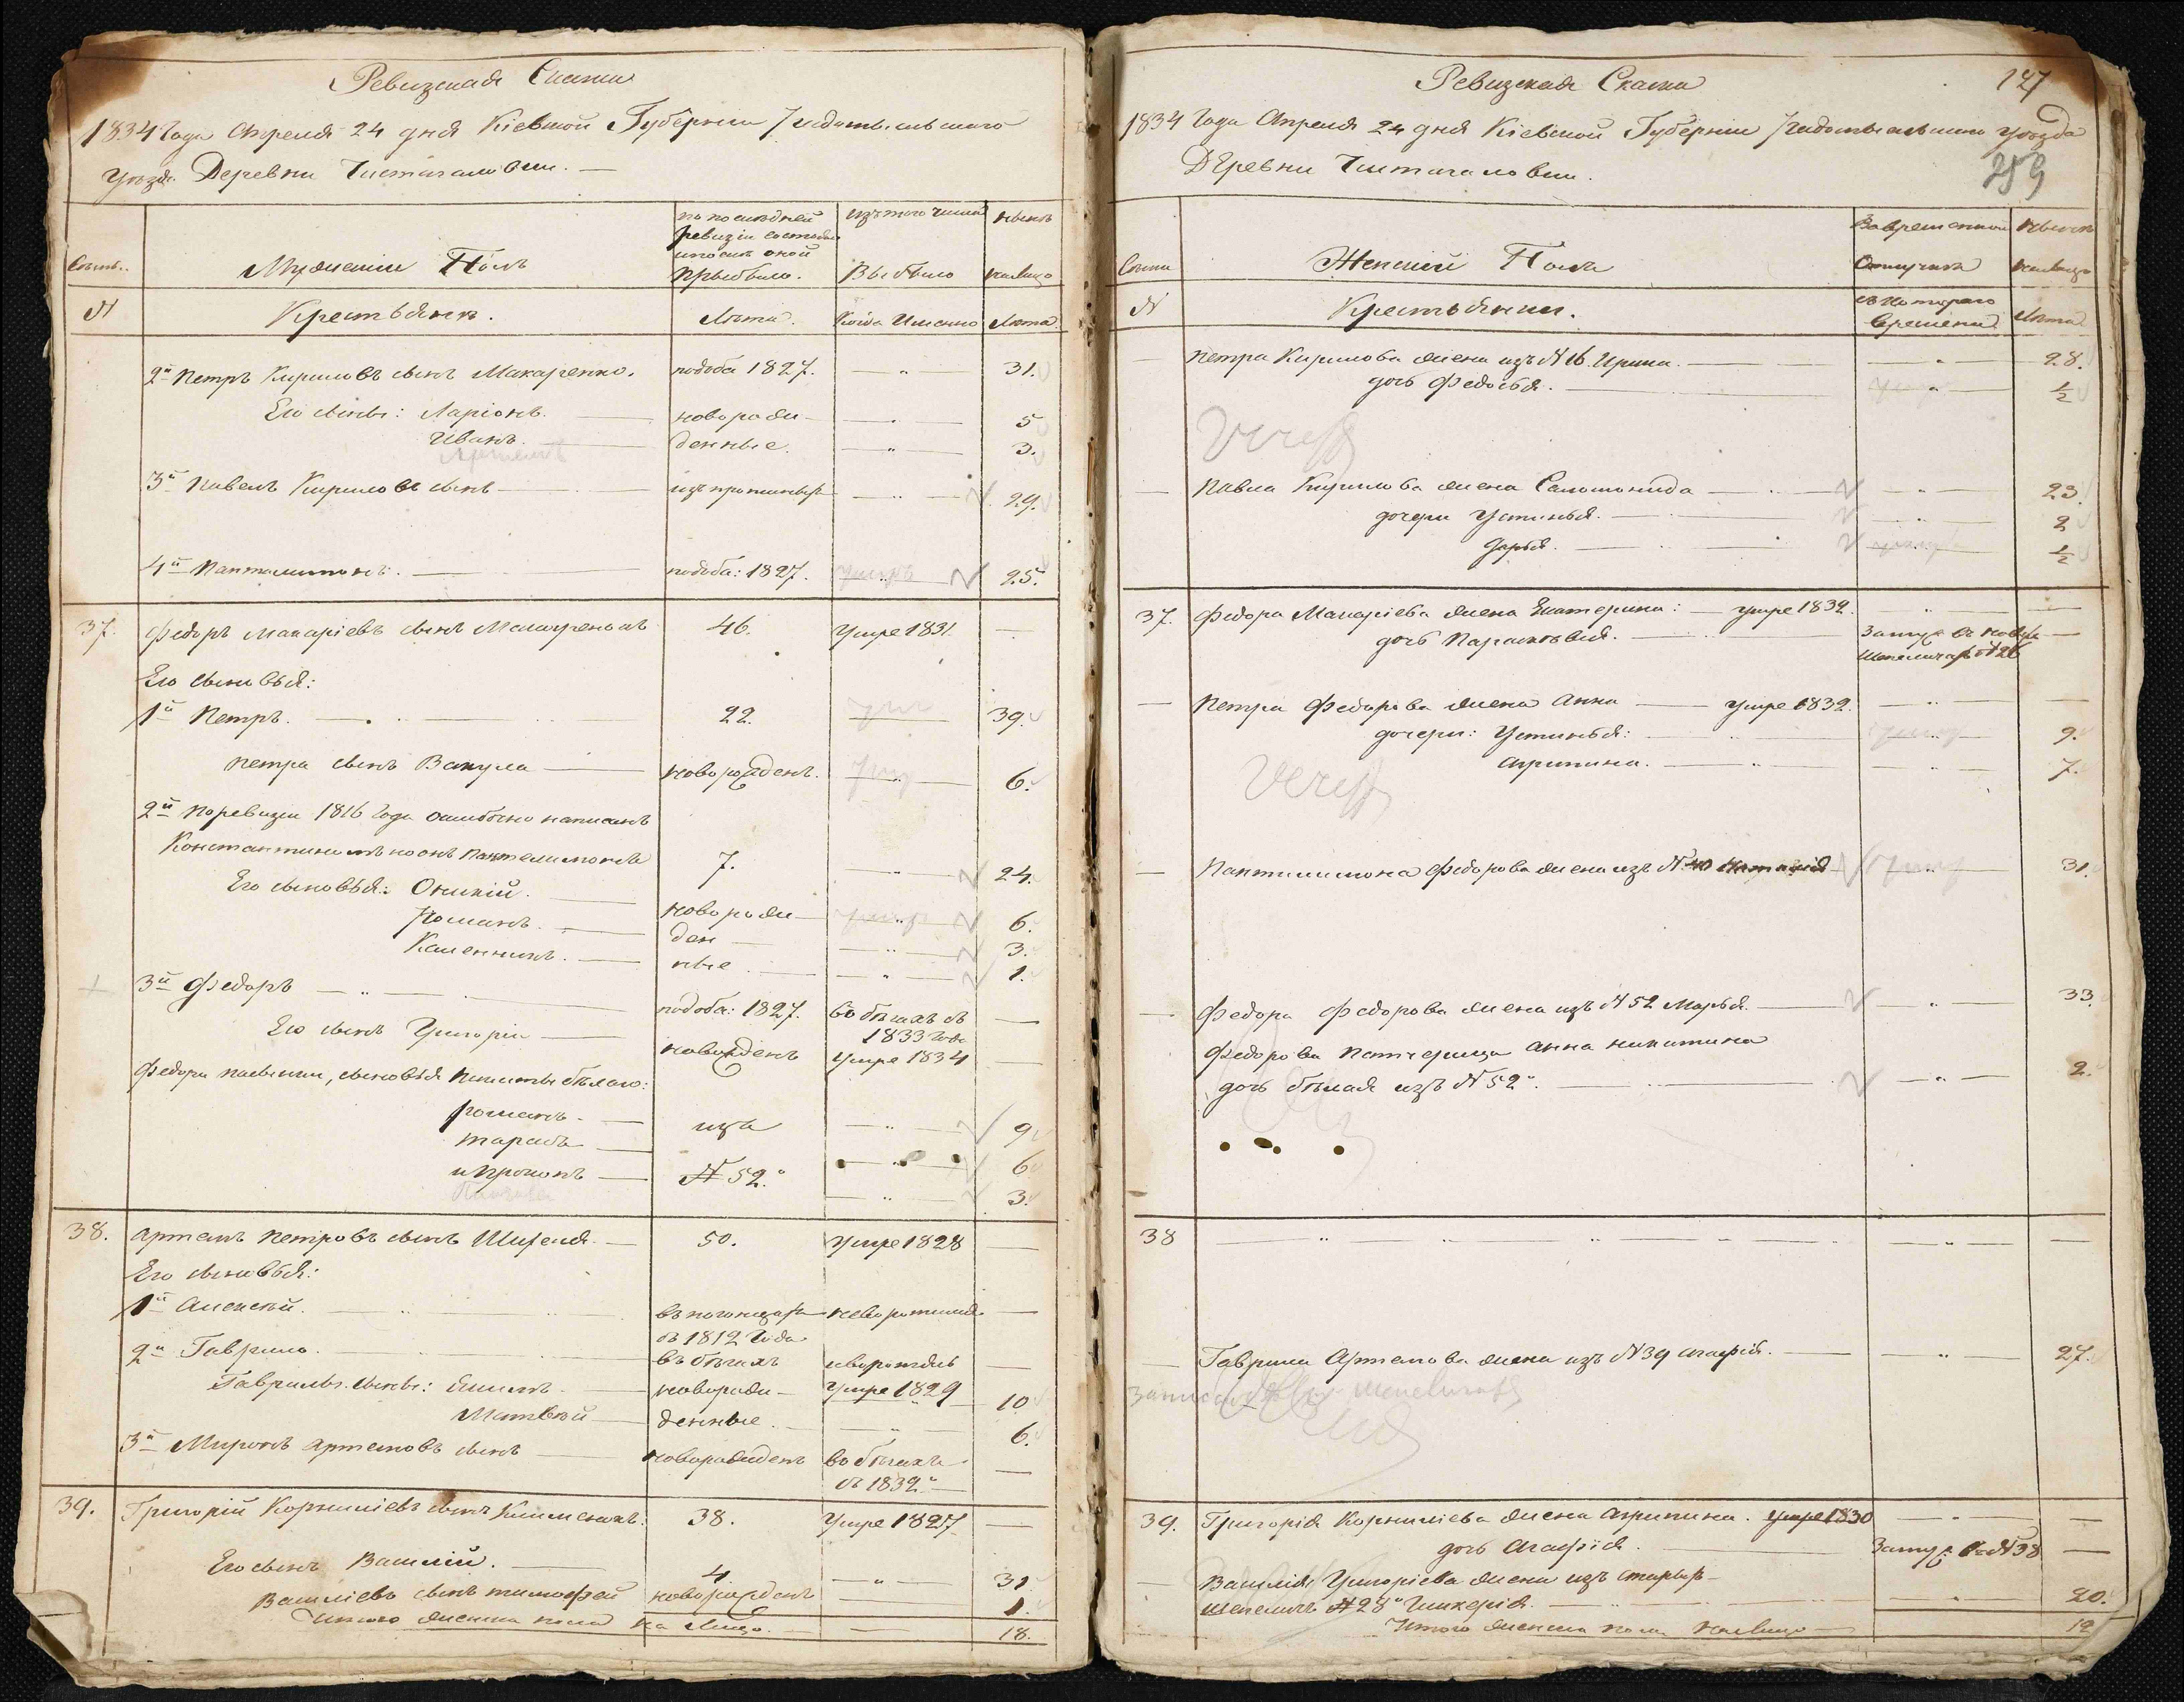 Ревизская Сказка
1834 Года Апреля 24 дня Кіевской Губерніи Радомысльского
Уезда Деревни Чистагаловки.
по последней
ревизіи состояло
и после оной
прыбыло.
изъ того числа
Выбыло
ныне
налицо
Семьи
Мужескій Полъ
N
Крестьяне.
Лета.
Когда Именно
Лета
2й Петръ Кириловъ сынъ Макаренко. подоба 1827. — " — 31.
Его сыны: Ларіонъ. новорож- — " — 5
Иванъ. денные. — " — 3.
3й Павелъ Кириловъ сынъ — " — 29.
4й Пантелимонъ. подоба: 1827. — " — 25.
37. Федоръ Макаріевъ сынъ Макаренокъ 46. Умре 1831. —
Его сыновья:
1й Петръ. 22. — 39.
Петра сынъ Вакула новорожденъ. — " — 6.
2й По ревизіи 1816 Года ошибочно написанъ
Константиномъ но онъ Пантелимонъ 7. — " — 24.
Его сыновья: Оникій. новорож- — " — 6.
Романъ. ден — " — 3.
Каленникъ. ные — " — 1.
3й Федоръ — " — подоба: 1827. Въ бегахъ съ —
1833 Года
Его сынъ Григорій новорожденъ Умре 1834 —
Федора пасынки, сыновья Никиты белаго:
Романъ. изъ — " — 9
Тарасъ — " — 6
и Прокопъ N 52." — " — 3.
38. Артемъ Петровъ сынъ Шугеля. 50. Умре 1828 —
Его сыновья:
1й Алексей. —
съ 1812 Года
2й Гаврило. въ бегахъ —
Гаврилы сыны: новорож- Умре 1829 10
Матвей денные. — " — 6.
3й Миронъ Артемовъ сынъ новорожденъ въ бегахъ —
съ 1832"
39. Григорій Корниліевъ сынъ Клименокъ. 38. Умре 1827 —
Его сынъ Василій. 4 — " — 31
Василіевъ сынъ Тимофей новорожденъ — 1.
Итого пола на лицо. — 18.
Ревизская Сказка
127
1834 Года Апреля 24 дня Кіевской Губерніи Радомысльскаго уезда
Деревни Чистагаловки.
259
Семьи
Женскій Полъ
Во временной
Отлучке
ныне
налицо
N
Крестьянки.
съ котораго
времени
Лета
— Петра Кирилова жена изъ N 16 Ирина. — " — 28.
дочь Федосья. — " — 1/2
— Павла Кирилова жена Саломонида — " — 23.
дочери Устинья. — " — 2
Дарья. — " — 1/2
37. Федора Макаріева жена Екатерина: — умре 1832. — " — —
дочь Парасковья. Замуж. въ новых —
Шепеличах N 26
— Петра Федорова жена Анна — умре 1832. — " — —
дочери: Устинья: — " — 9.
Агрипина. — " — 7.
— Пантилимона Федорова жена изъ N 40 Наталія — " — 31.
— Федора Федорова жена изъ N 52 Марья. — " — 33.
Федорова патчерица Анна Никитина
дочь белая изъ N 52". — " — 2.
38 — " — " — " — —
— Гаврила Артемова жена изъ N 39 Агафія. — " — 27.
39. Григорія Корниліева жена Агрипина. умре 1830 — " — —
дочь Агафія. Замуж. въ N 38 —
— Василія Григоріева жена изъ старых
Шепелич N 28" Гликерія. — " — 20.
Итого женска пола налицо — 12